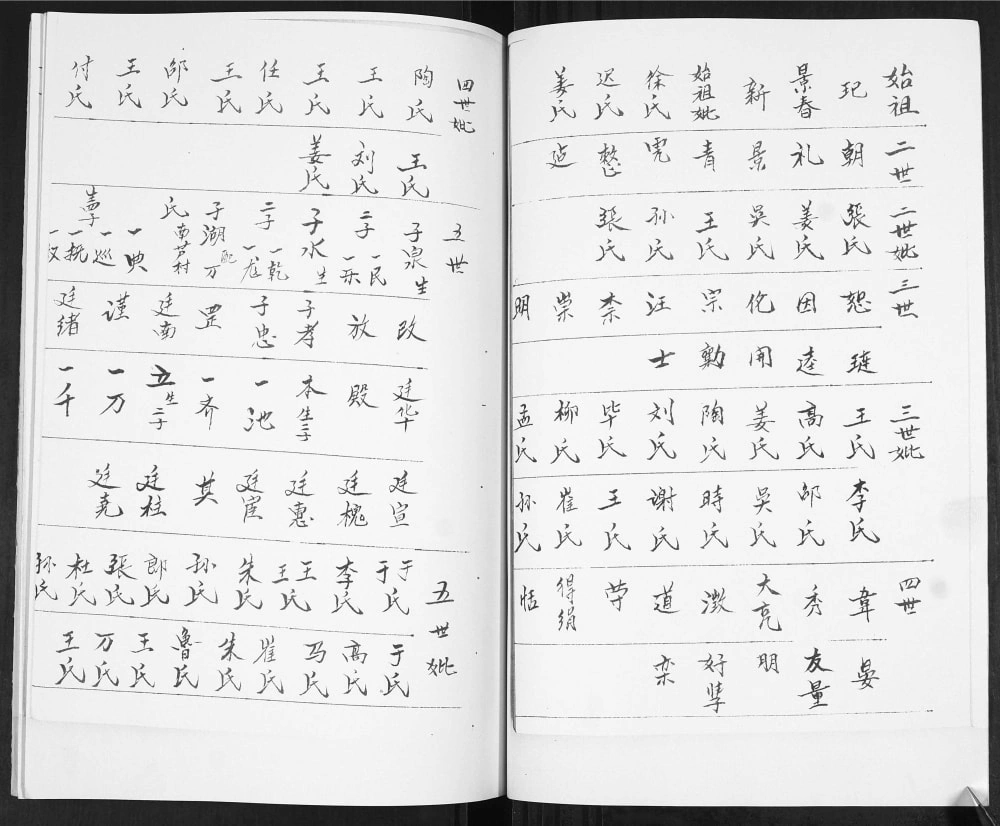 始祖 玘 景春 新
始祖妣 徐氏 迟氏 姜氏
二世 朝 礼 景 青 宪 整
二世妣 張氏 姜氏 吳氏 王氏 孙氏 張氏
三世 恕 因 伦 宗 汪 柰 崇 明
琏 逵 開 勳 士
三世妣 王氏 高氏 姜氏 陶氏 刘氏 毕氏 柳氏 孟氏
李氏 邰氏 吴氏 時氏 谢氏 王氏 崔氏 孙氏
四世 韋 秀 大亮 澂 道 荣 得绢 恬
晏 友量 明 好孳 栾
四世妣 陶氏 王氏 王氏 任氏 王氏 邰氏 王氏 付氏
王氏 刘氏 姜氏
五世 子泉生二子 一民 一乐 子水生二子 一乾 一龙 子湖配万氏南芦村 生四子 一典 一巡 一挑
改 放 子孝 子忠 罡 廷南 谨 廷绪
廷华 殿 本生三子 一池 一齐 立生二子 一万 一千
廷宣 廷槐 廷惠 廷宦 其 廷柱 廷尧
五世妣 于氏 于氏 李氏 王氏 王氏 朱氏 孙氏 郎氏 張氏 杜氏 孙氏
于氏 高氏 马氏 崔氏 朱氏 魯氏 王氏 万氏 王氏